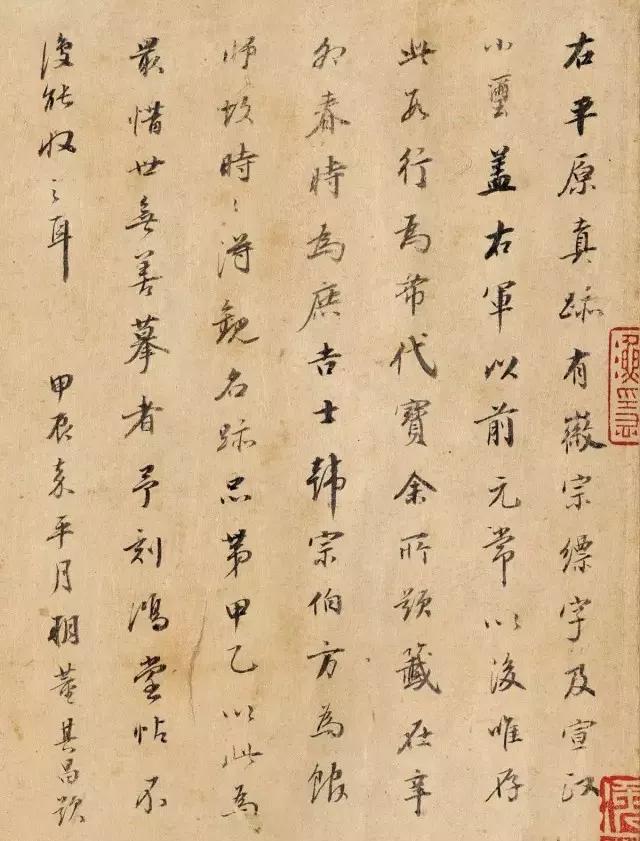 右平原真跡有徽宗縹字及宣
小璽盖右軍以前元常以後唯存
此數行為希代寶余所題籤在辛
卯春時為庶吉士韓宗伯方為館
師故時〻得観名跡品第甲乙以此為
最惜世無善摹者予刻鴻堂帖不
復能收之耳
甲辰平月朔董其昌題